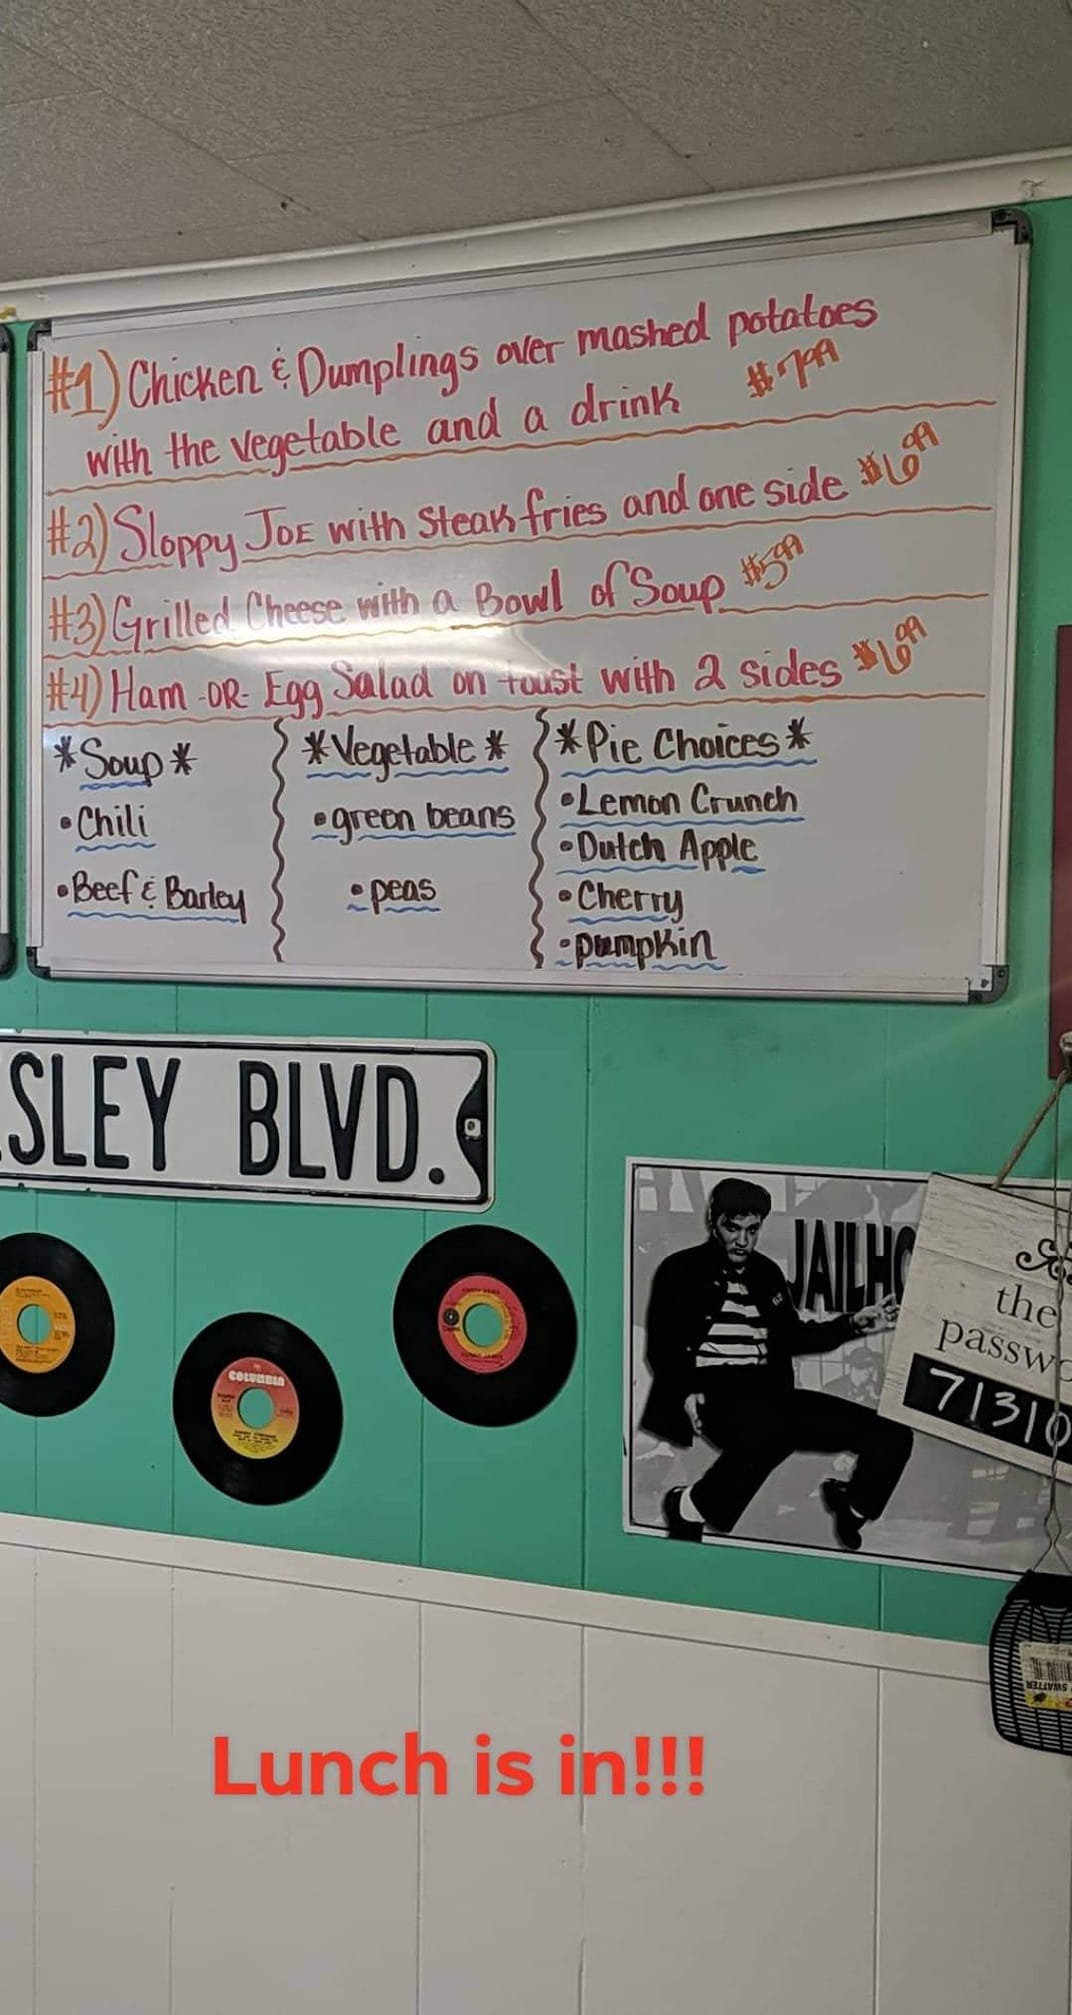 #1) Chicken & Dumplings over mashed potatoes
with the vegetable and a drink $7.99
#2) Sloppy JOE with Steak fries and one side $6.99
#3) Grilled Cheese with a Bowl of Soup $5.99
#4) Ham -OR- Egg Salad on toast with 2 sides $6.99
*Soup*
•Chili
•Beef & Barley
*Vegetable*
•green beans
•peas
*Pie Choices*
•Lemon Crunch
•Dutch Apple
•Cherry
•pumpkin
SLEY BLVD.
COLUMBIA
JAILHO
the
passwo
71310
SWATTER
Lunch is in!!!